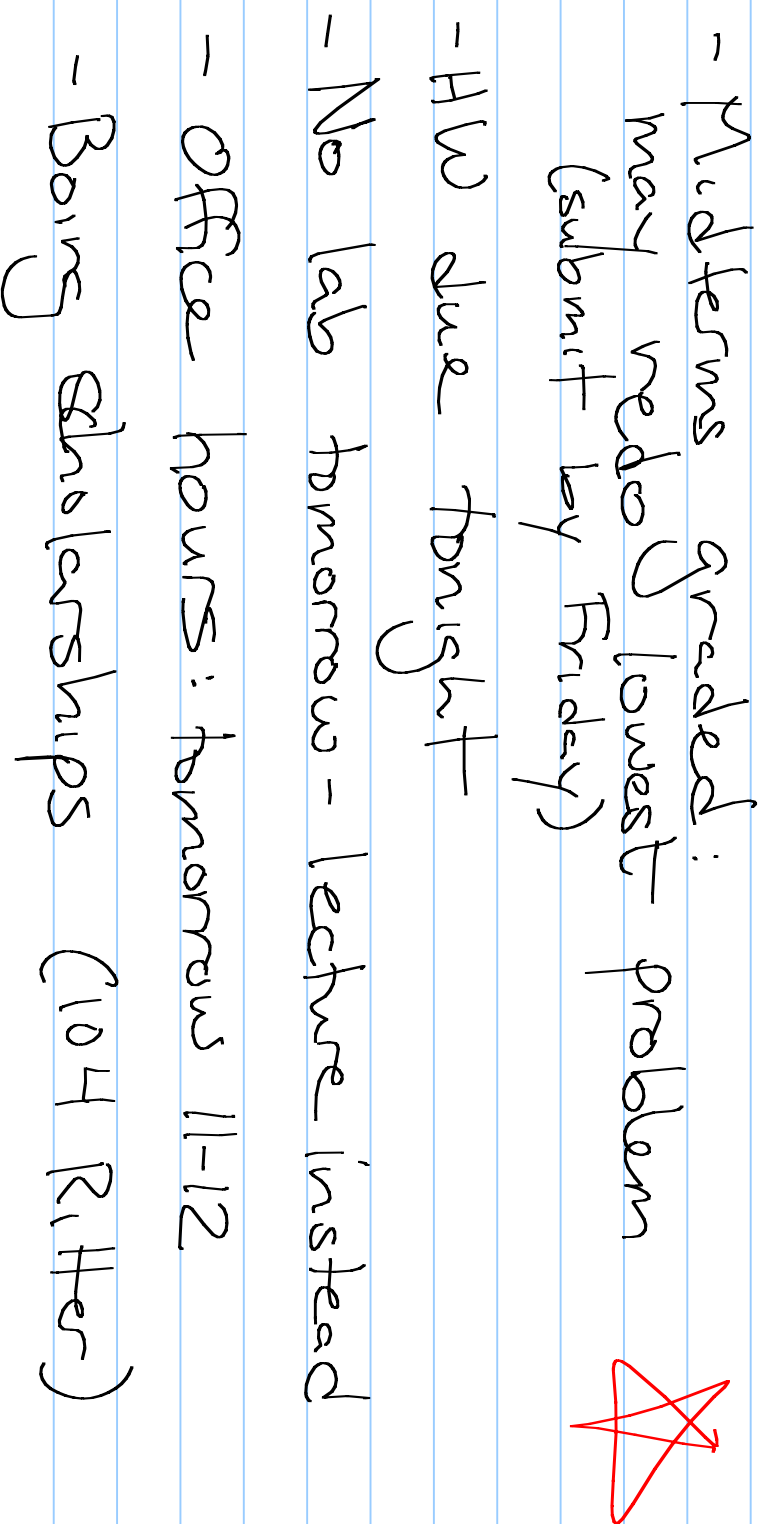 - Midterms graded:
may redo lowest problem
(submit by Friday)
- HW due tonight
- No lab tomorrow - lecture instead
- Office hours: tomorrow 11-12
- Boing scholarships (104 Ritter)